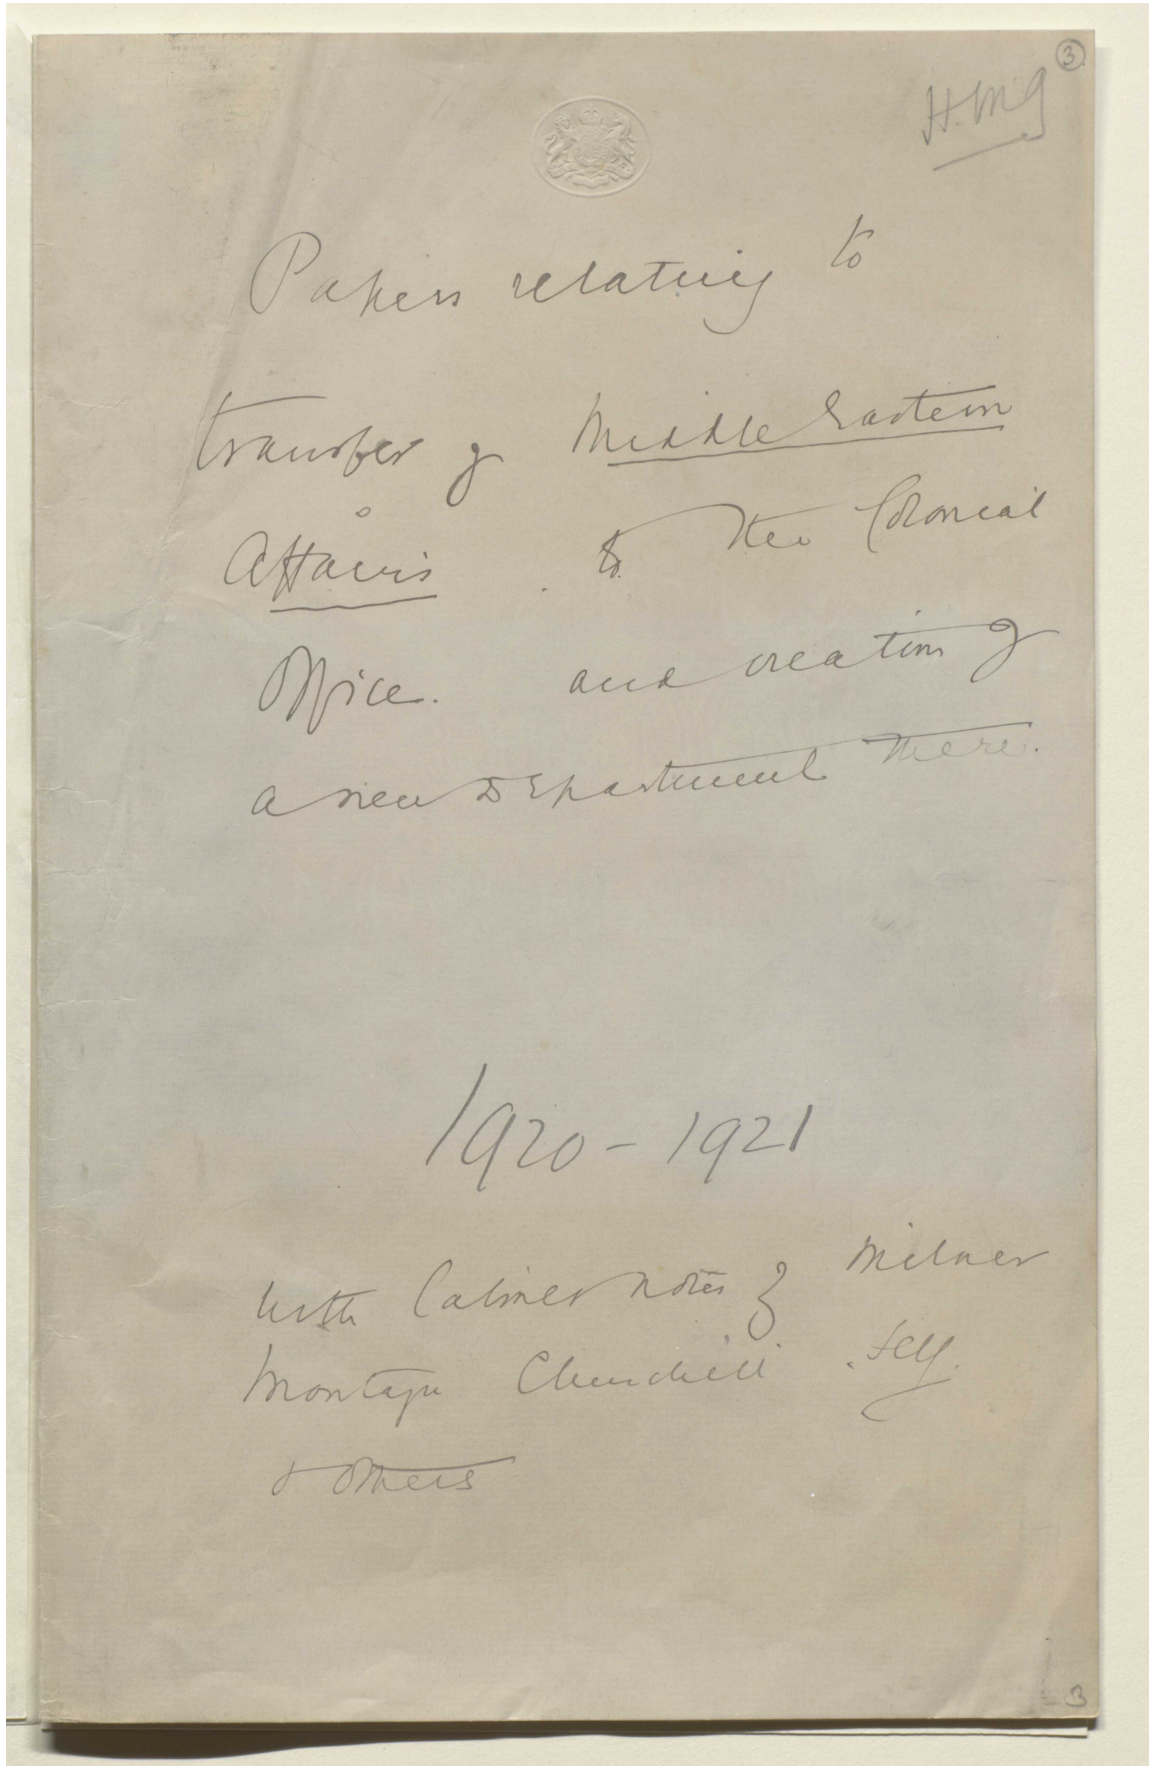 3
H.M.G
Papers relating to
transfer of Middle Eastern
Affairs to the Colonial
Office. and creation of
a new Department there.
1920 - 1921
with Cabinet notes of Milner
Montagu Churchill self.
& others
3